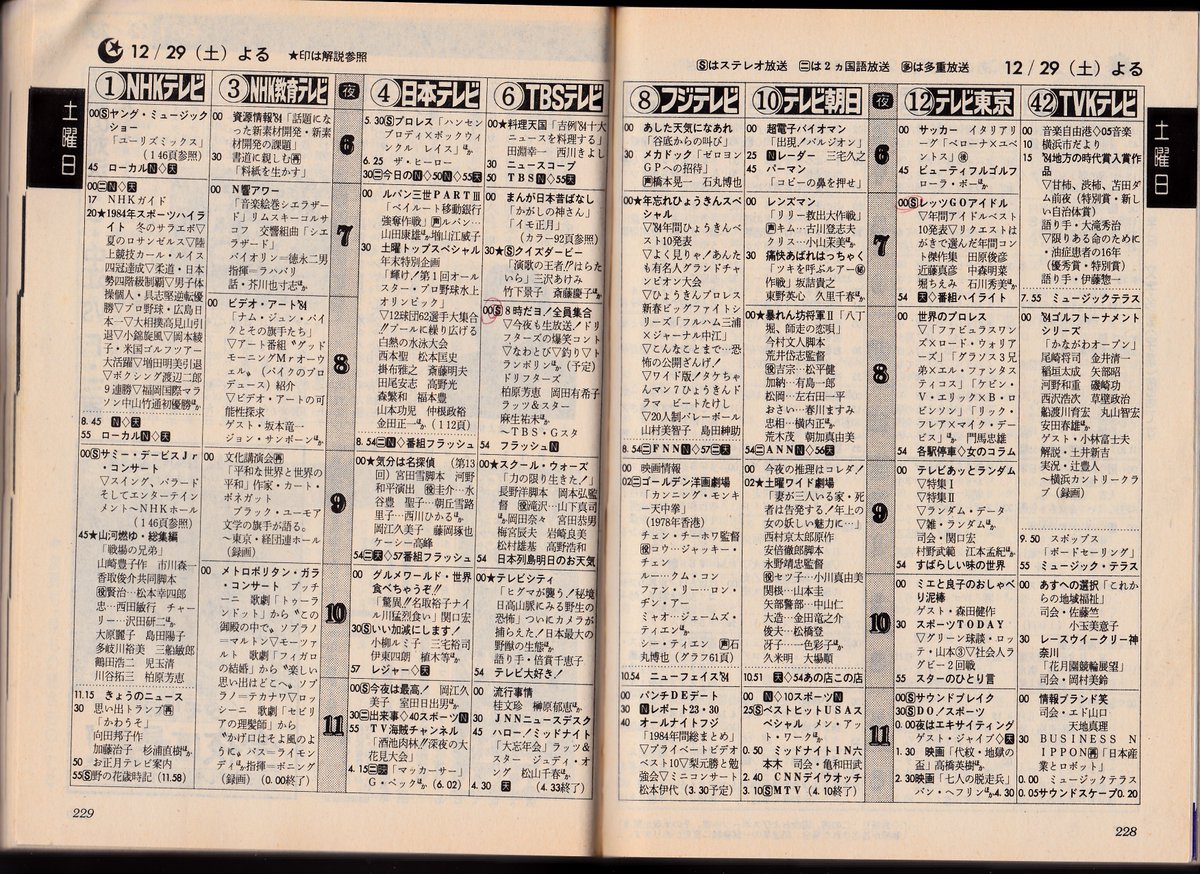 12/29（土）よる ★印は解説参照
土曜日
①NHKテレビ
00Ⓢヤング・ミュージックショー
「ユーリズミックス」
（146頁参照）
45 ローカルN◇天
00㊁N◇天
17 NHKガイド
20★1984年スポーツハイライト 冬のサラエボ▽
夏のロサンゼルス▽陸
上競技カール・ルイス
四冠達成▽柔道・日本
勢四階級制覇▽男子体
操個人・具志堅逆転優
勝▽プロ野球・広島日
本一▽大相撲高見山引
退▽小錦旋風▽岡本綾
子・米国ゴルフツアー
大活躍▽増田明美引退
▽ボクシング渡辺二郎
9連勝▽福岡国際マラ
ソン中山竹通初優勝ほか
8.45 N◇天
55 ローカルN◇天
00Ⓢサミー・デービスJr
・コンサート
▽スイング、バラード
そしてエンターテイン
メント〜NHKホール
（146頁参照）
45★山河燃ゆ・総集編
「戦場の兄弟」
山崎豊子作 市川森一
香取俊介共同脚本
賢治…松本幸四郎
忠…西田敏行 チャー
リー…沢田研二ほか
大原麗子 島田陽子
多岐川裕美 三船敏郎
鶴田浩二 児玉清
川谷拓三 柏原芳恵
11.15 きょうのニュース
30 思い出トランプ再
「かわうそ」
向田邦子作
加藤治子 杉浦直樹ほか
50 お正月テレビ案内
55Ⓢ野の花歳時記（11.58）
③NHK教育テレビ
00 資源情報'84「話題に
なった新素材開発・新素
材開発の課題」
30 書道に親しむ再
「料紙を生かす」
00 N響アワー
「音楽絵巻シエラザー
ド」リムスキーコルサ
コフ 交響組曲「シエ
ラザード」
バイオリン＝徳永二男
指揮＝ラハバリ
話・芥川也寸志ほか
00 ビデオ・アート'84
「ナム・ジュン・パイ
クとその旗手たち」
▽アート番組〝グッド
モーニングMrオーウ
ェル〟（パイクのプロ
デュース）紹介
▽ビデオ・アートの可
能性探求
ゲスト・坂本竜一
ジョン・サンボーンほか
00 文化講演会再
「平和な世界と世界の
平和」作家・カート・
ボネガット
ブラック・ユーモア
文学の旗手が語る。
〜東京・経団連ホール
（録画）
00 メトロポリタン・ガラ
・コンサート プッチ
ーニ 歌劇「トゥーラ
ンドット」から〝この
御殿の中で〟ソプラノ
＝マルトン▽モーツァ
ルト 歌劇「フィガロ
の結婚」から〝楽しい
思い出はどこへ〟ソプ
ラノ＝テカナワ▽ロッ
シーニ 歌劇「セビリ
アの理髪師」から
〝かげ口はそよ風のよ
うに〟バス＝ライモン
ディほか指揮＝ボニング
（録画）（0.00終了）
夜
6
7
8
9
10
11
④日本テレビ
5.30Ⓢプロレス「ハンセン
ブロディ×ボックウィ
ンクル レイス」ほか
6.25 ザ・ヒーロー
30㊁今日のN◇50N◇55天
00 ルパン三世PARTⅢ
「ベイルート移動銀行
強奪作戦」声ルパン…
山田康雄ほか増山江威子
30 土曜トップスペシャル
年末特別企画
「輝け！第1回オール
スター・プロ野球水上
オリンピック」
▽12球団62選手大集合
!!プールに繰り広げる
白熱の水泳大会
西本聖 松本匡史
掛布雅之 斎藤明夫
田尾安志 高野光
森繁和 福本豊
山本功児 仲根政裕
金田正一ほか（112頁）
8.54㊁N◇番組フラッシュ
00★気分は名探偵（第13
回）宮田雪脚本 河野
和平演出 役圭介…水
谷豊 聖子…朝丘雪路
里子…西川ひかるほか
岡江久美子 藤岡琢也
ケーシー高峰
54㊁天◇57番組フラッシュ
00 グルメワールド・世界
食べちゃうぞ!!
「驚異!!名取裕子ナイ
ル川猛烈食い」関口宏
30Ⓢいい加減にします！
小柳ルミ子 三宅裕司
伊東四朗 植木等ほか
57 レジャー◇天
00Ⓢ今夜は最高！ 岡江久
美子 室田日出男ほか
30㊁出来事◇40スポーツN
55 TV海賊チャンネル
「酒池肉林!!深夜の大
花見大会」
4.15㊁天「マッカーサー」
G・ペックほか（6.02）
⑥TBSテレビ
00★料理天国「吉例'84十大
ニュースを料理する」
田淵幸一 西川きよし
30 ニュースコープ
50 TBSN◇55天
00 まんが日本昔ばなし
「かがしの神さん」
「イモ正月」
（カラー92頁参照）
30★Ⓢクイズダービー
「演歌の王者!!はらた
いら」三沢あけみ
竹下景子 斎藤慶子ほか
00Ⓢ8時だヨ！全員集合
▽今夜も生放送！ドリ
フターズの爆笑コント
▽なわとび▽釣り▽ト
ランポリンほか（予定）
ドリフターズ
柏原芳恵 岡田有希子
ラッツ＆スター
麻生祐未ほか
〜TBS・Gスタ
54 フラッシュN
00★スクール・ウォーズ
「力の限り生きた！」
長野洋脚本 岡本弘監
督 役滝沢…山下真司
ほか岡田奈々 宮田恭男
梅宮辰夫 岩崎良美
松村雄基 高野浩和
54 日本列島明日のお天気
00★テレビシティ
「ヒグマが襲う！秘境
日高山脈にみる野生の
恐怖」ついにカメラが
捕らえた！日本最大の
野獣の生態ほか
語り手・倍賞千恵子
54 テレビ大好き！
00 流行事情
桂文珍 榊原郁恵ほか
30 JNNニュースデスク
45 ハロー！ミッドナイト
「大忘年会」ラッツ＆
スター ジュディ・オ
ング 松山千春ほか
4.30 天 （4.33終了）
229
Ⓢはステレオ放送 ㊁は2ヵ国語放送 多は多重放送 12/29（土）よる
土曜日
⑧フジテレビ
00 あした天気になあれ
「谷底からの叫び」
30 メカドック「ゼロヨン
GPへの招待」
声橋本晃一 石丸博也
00★年忘れひょうきんスペ
シャル
▽'84年間ひょうきんベ
スト10発表
▽よく見りゃ！あんた
も有名人グランドチャ
ンピオン大会
▽ひょうきんプロレス
新春ビッグファイトシ
リーズ「フルハム三浦
×ジャーナル中江」
▽こんなことまで…恐
怖の公開ざんげ！
▽ワイド版！タケちゃ
んマン7ひょうきんド
ラマ ビートたけし
▽20人制バレーボール
山村美智子 島田紳助
8.54㊁FNN◇57㊁天
00 映画情報
02㊁ゴールデン洋画劇場
「カンニング・モンキ
ー天中拳」
（1978年香港）
チェン・チーホワ監督
役コウ…ジャッキー・
チェン
ルー…クム・コン
ファン・リー…ロン・
ヂン・アー
ミャオ…ジェームズ・
ティエンほか
ティエン・シー 声石
丸博也（グラフ61頁）
10.54 ニューフェイス'84
00 パンチDEデート
30 Nレポート23・30
40 オールナイトフジ
「1984年間総まとめ」
▽プライベートビデオ
ベスト10▽梨元勝と勉
強会▽ミニコンサート
松本伊代（3.30予定）
⑩テレビ朝日
00 超電子バイオマン
「出現！バルジオン」
25 Nレーダー 三宅久之
45 パーマン
「コピーの鼻を押せ」
00 レンズマン
「リリー救出大作戦」
声キム…古川登志夫
クリス…小山茉美ほか
30 痛快あばれはっちゃく
「ツキを呼ぶルアー㊙
作戦」坂詰貴之
東野英心 久里千春ほか
00★暴れん坊将軍Ⅱ「八丁
堀、師走の恋唄」
今村文人脚本
荒井岱志監督
役吉宗…松平健
加納…有島一郎
松岡…左右田一平
おさい…春川ますみ
忠相…横内正ほか
荒木茂 朝加真由美
54㊁ANN◇56天
00 今夜の推理はコレダ！
02★土曜ワイド劇場
「妻が三人いる家・死
者は告発する！年上の
女の妖しい魅力に…」
西村京太郎原作
安倍徹郎脚本
永野靖忠監督
役セツ子…小川真由美
関根…山本圭
矢部警部…中山仁
大造…金田竜之介
俊夫…松橋登
冴子…一色彩子ほか
久米明 大場順
10.51 天◇54あの店この店
00 N◇10スポーツN
25ⓈベストヒットUSAス
ペシャル メン・アッ
ト・ワークほか
0.50 ミッドナイトIN六
本木 司会・亀和田武
2.40 CNNデイウォッチ
3.10ⓈMTV（4.10終了）
夜
6
7
8
9
10
11
⑫テレビ東京
00 サッカー イタリアリ
ーグ「ベローナ×ユベ
ントス」
45 ビューティフルゴルフ
ローラ・ボーほか
00ⓈレッツGOアイドル
▽年間アイドルベスト
10発表▽リクエストは
がきで選んだ年間コン
ト傑作集 田原俊彦
近藤真彦 中森明菜
堀ちえみ 石川秀美ほか
54 天◇番組ハイライト
00 世界のプロレス
▽「ファビュラスワン
ズ×ロード・ウォリア
ーズ」「グラソス3兄
弟×エル・ファンタス
ティコス」「ケビン・
V・エリック×B・ロ
ビンソン」「リック・
フレアー×マイク・デー
ビス」ほか 門馬忠雄
54 各駅停車◇女のコラム
00 テレビあッとランダム
▽特集Ⅰ
▽特集Ⅱ
▽ランダム・データ
▽雑・ランダムほか
司会・関口宏
村野武範 江本孟紀ほか
54 すばらしい味の世界
00 ミエと良子のおしゃべ
り泥棒
ゲスト・森田健作
30 スポーツTODAY
▽グリーン球談・ロッ
テ・山本③▽社会人ラ
グビー2回戦
55 スターのひとり言
00Ⓢサウンドブレイク
30ⓈDO！スポーツ
0.00夜はエキサイティング
ゲスト・ジャイブ◇天
1.30 映画「代紋・地獄の
盃」高橋英樹ほか
2.30映画「七人の脱走兵」
バン・ヘフリンほか4.30
㊷TVKテレビ
00 音楽自由港◇05音楽
10 横浜市だより
15 '84地方の時代賞入賞作
品
▽甘柿、渋柿、苫田ダ
ム前夜（特別賞・新し
い自治体賞）
語り手・大滝秀治
▽限りある命のために
・油症患者の16年
（優秀賞・特別賞）
語り手・伊藤惣一
7.55 ミュージックテラス
00 '84ゴルフトーナメント
シリーズ
「かながわオープン」
尾崎将司 金井清一
稲垣太成 矢部昭
河野和重 磯崎功
西沢浩次 草壁政治
船渡川育宏 丸山智宏
安田春雄ほか
ゲスト・小林富士夫
解説・土井新吉
実況・辻豊人
〜横浜カントリークラ
ブ（録画）
9.50 スポップス
「ボードセーリング」
55 ミュージック・テラス
00 あすへの選択「これか
らの地域福祉」
司会・佐藤竺
小玉美意子
30 レースウイークリー神
奈川
「花月園競輪展望」
司会・岡村美鈴
00 情報ブランド笑
司会・エド山口
天地真理
30 BUSINESS N
IPPON再「日本産
業とロボット」
0.00 ミュージックテラス
0.05サウンドスケープ0.20
228